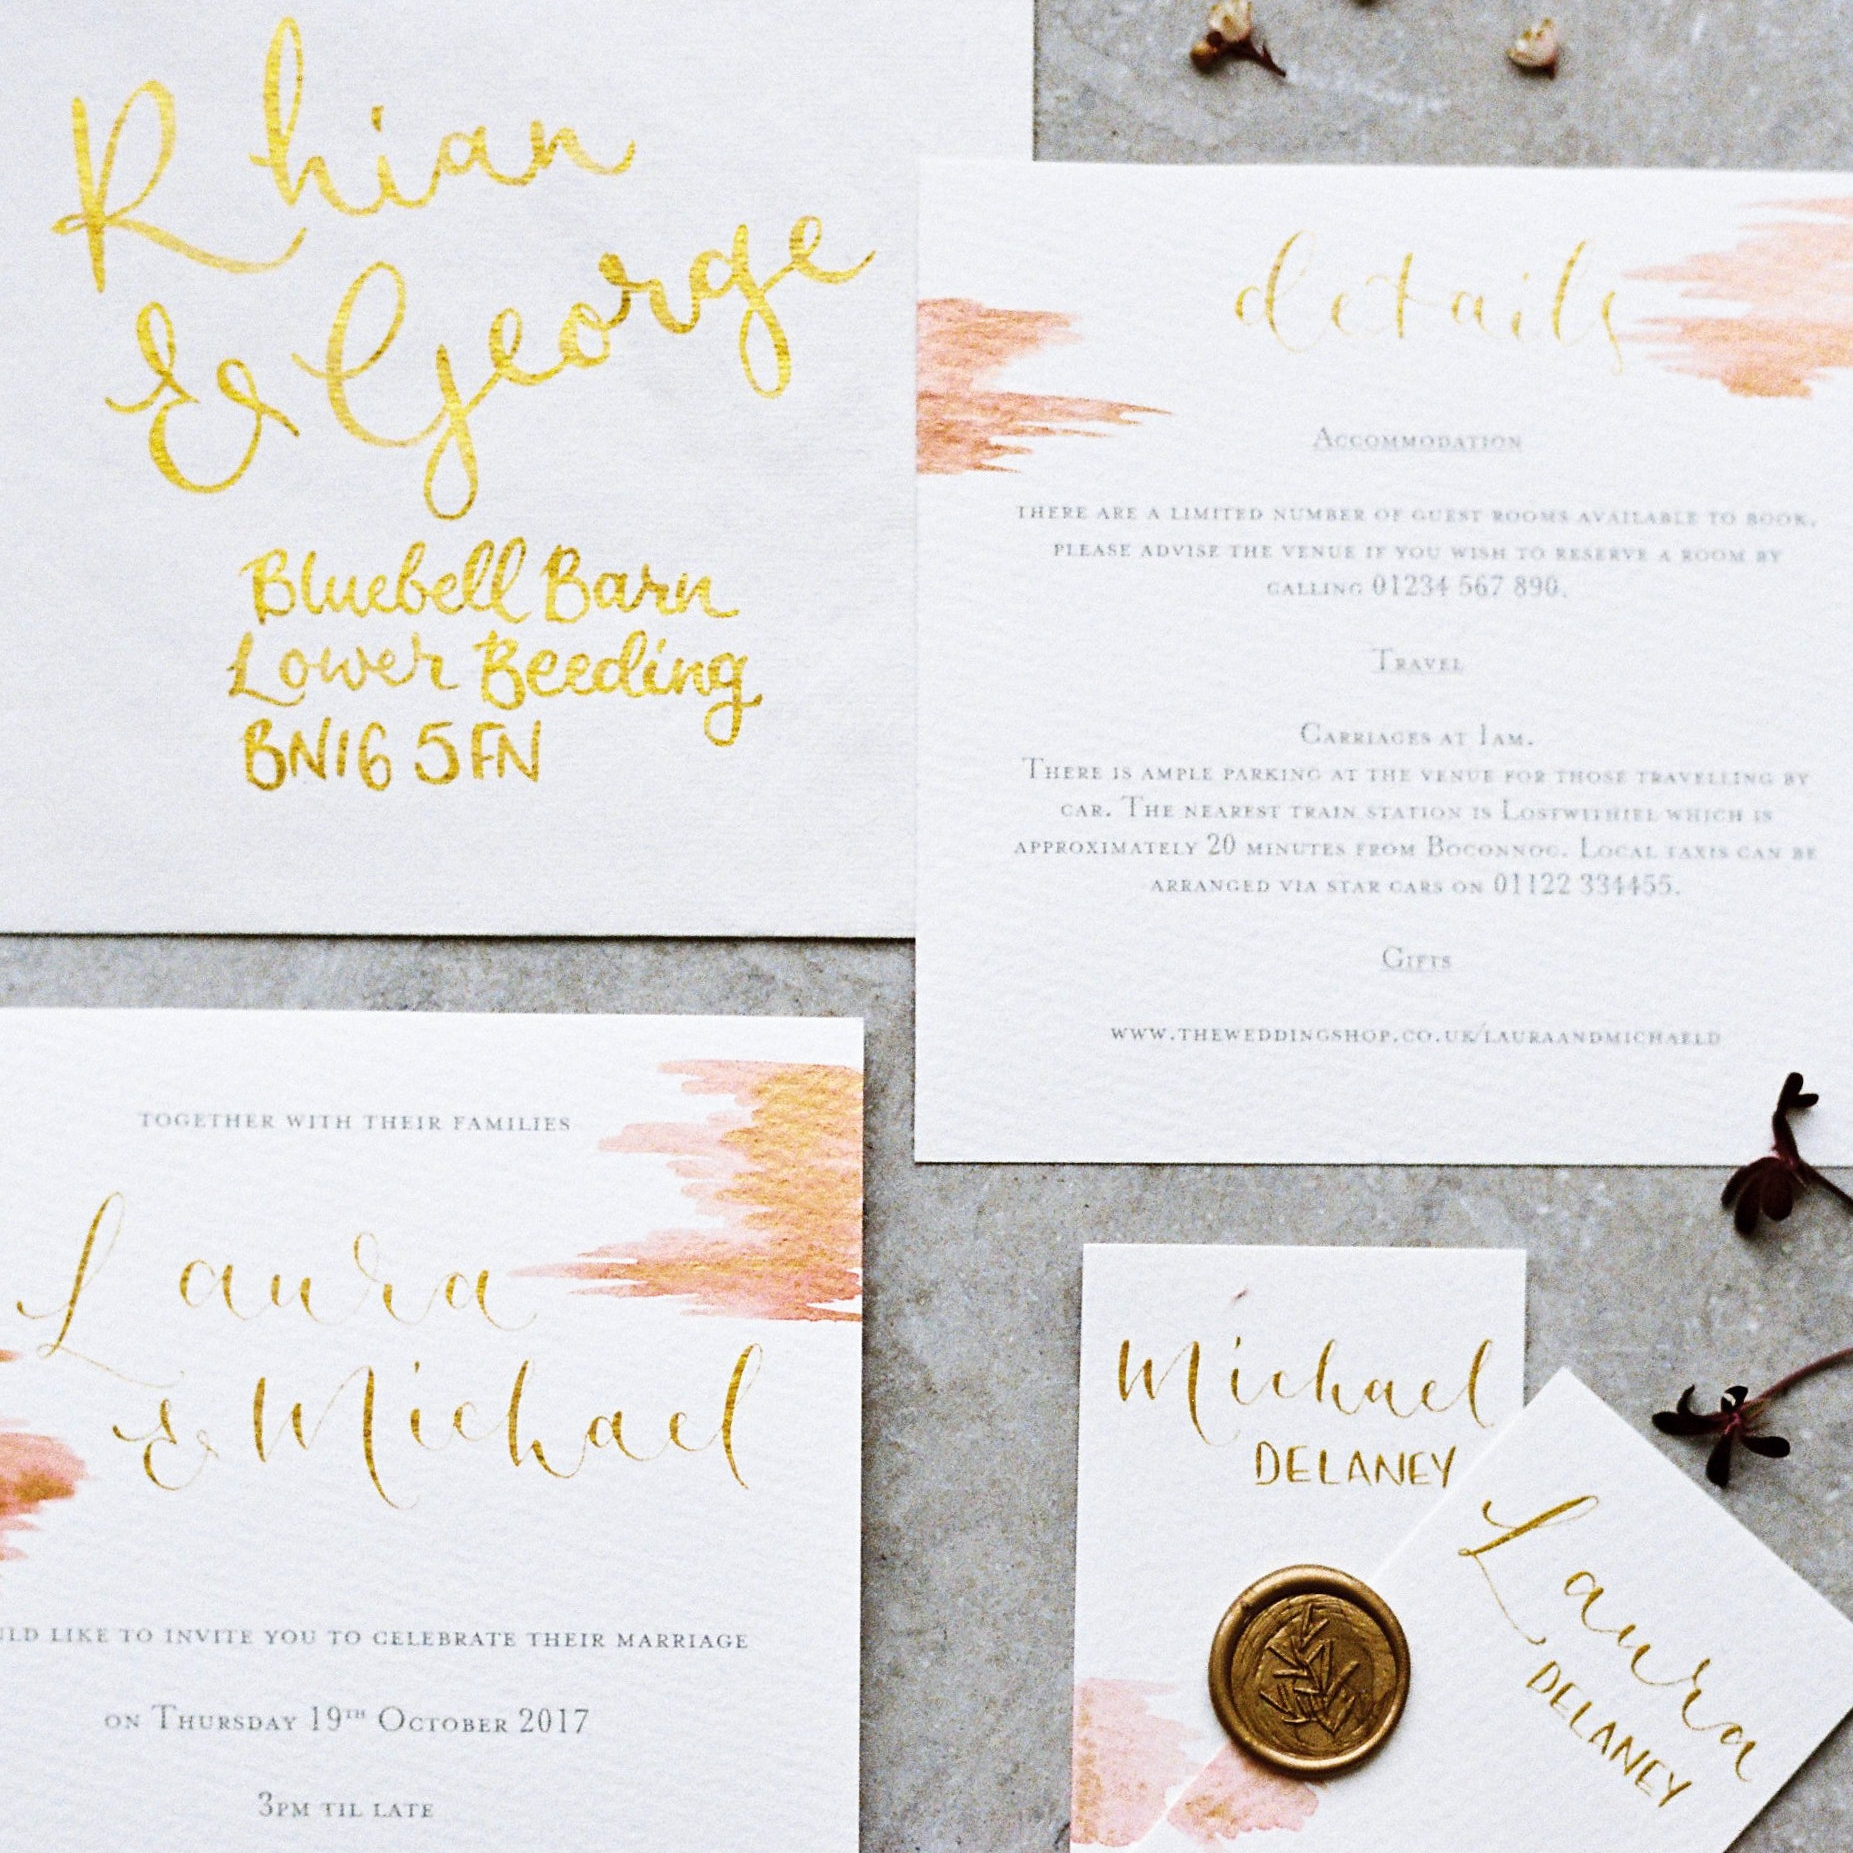 Rhian
& George
Bluebell Barn
Lower Beeding
BN16 5FN
details
Accommodation
there are a limited number of guest rooms available to book.
please advise the venue if you wish to reserve a room by
calling 01234 567 890.
Travel
Carriages at 1am.
There is ample parking at the venue for those travelling by
car. The nearest train station is Lostwithiel which is
approximately 20 minutes from Boconnoc. Local taxis can be
arranged via star cars on 01122 334455.
Gifts
www.theweddingshop.co.uk/lauraandmichaeld
together with their families
Laura
& Michael
like to invite you to celebrate their marriage
on Thursday 19th October 2017
3pm til late
Michael
DELANEY
Laura
DELANEY